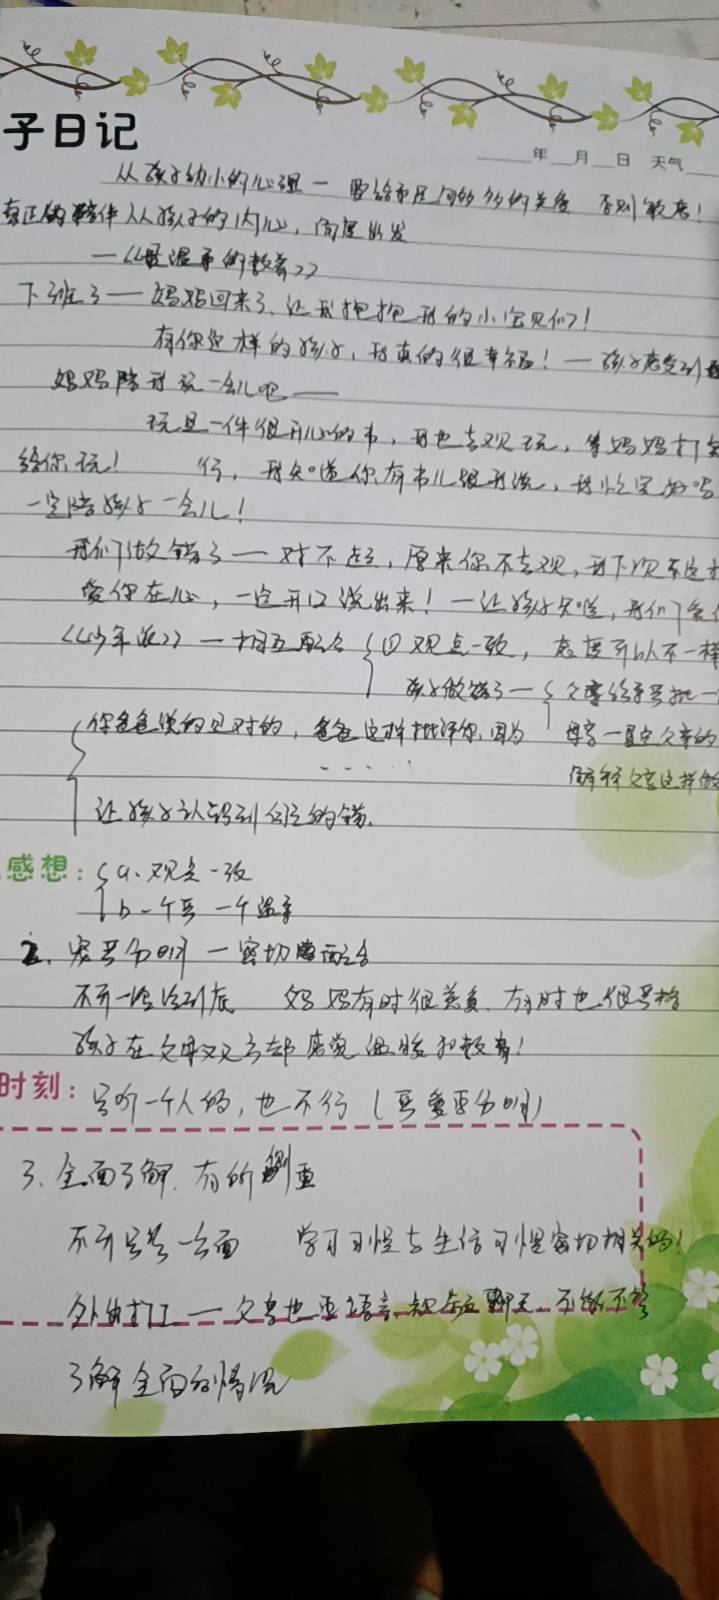 子日记
年 月 日 天气
从孩子幼小的心理一 要给予足够的关爱 否则
真正的陪伴从孩子的内心,角度出发
一《最温柔的教养》
下班了——妈妈回来了,让我抱抱我的小宝贝们!
有你这样的孩子,我真的很幸福!一孩子感受到
妈妈陪我玩一会儿吧——
玩是一件很开心的事,我也喜欢玩,等妈妈打
给你玩! 行,我知道你有事儿跟我说,我忙完好吗
一定陪孩子一会儿!
我们做错了——对不起,原来你不喜欢,我下次不这
爱你在心,一定开口说出来!一让孩子知道,我们
《少年派》一相互配合 ① 观点一致,态度可以不一样
孩子做错了— 父亲给予严批一
你爸爸说的是对的,爸爸这样批评你,因为 母亲一
解释父亲这样做
让孩子认识到自己的错.
感想: a.观点一致
b一个严 一个温柔
2. 宽严分明 一密切配合
不可一沿到底 妈妈有时很慈爱,有时也很严格
孩子在父母双方都感觉温暖和教育!
时刻: 只听一个人的,也不行(严爱要分明)
3. 全面了解,有所侧重
不可只是一方面 学习习惯与生活习惯密切相关的!
外出打工一父母也要语音、视频聊天,不能不管
了解全面的情况